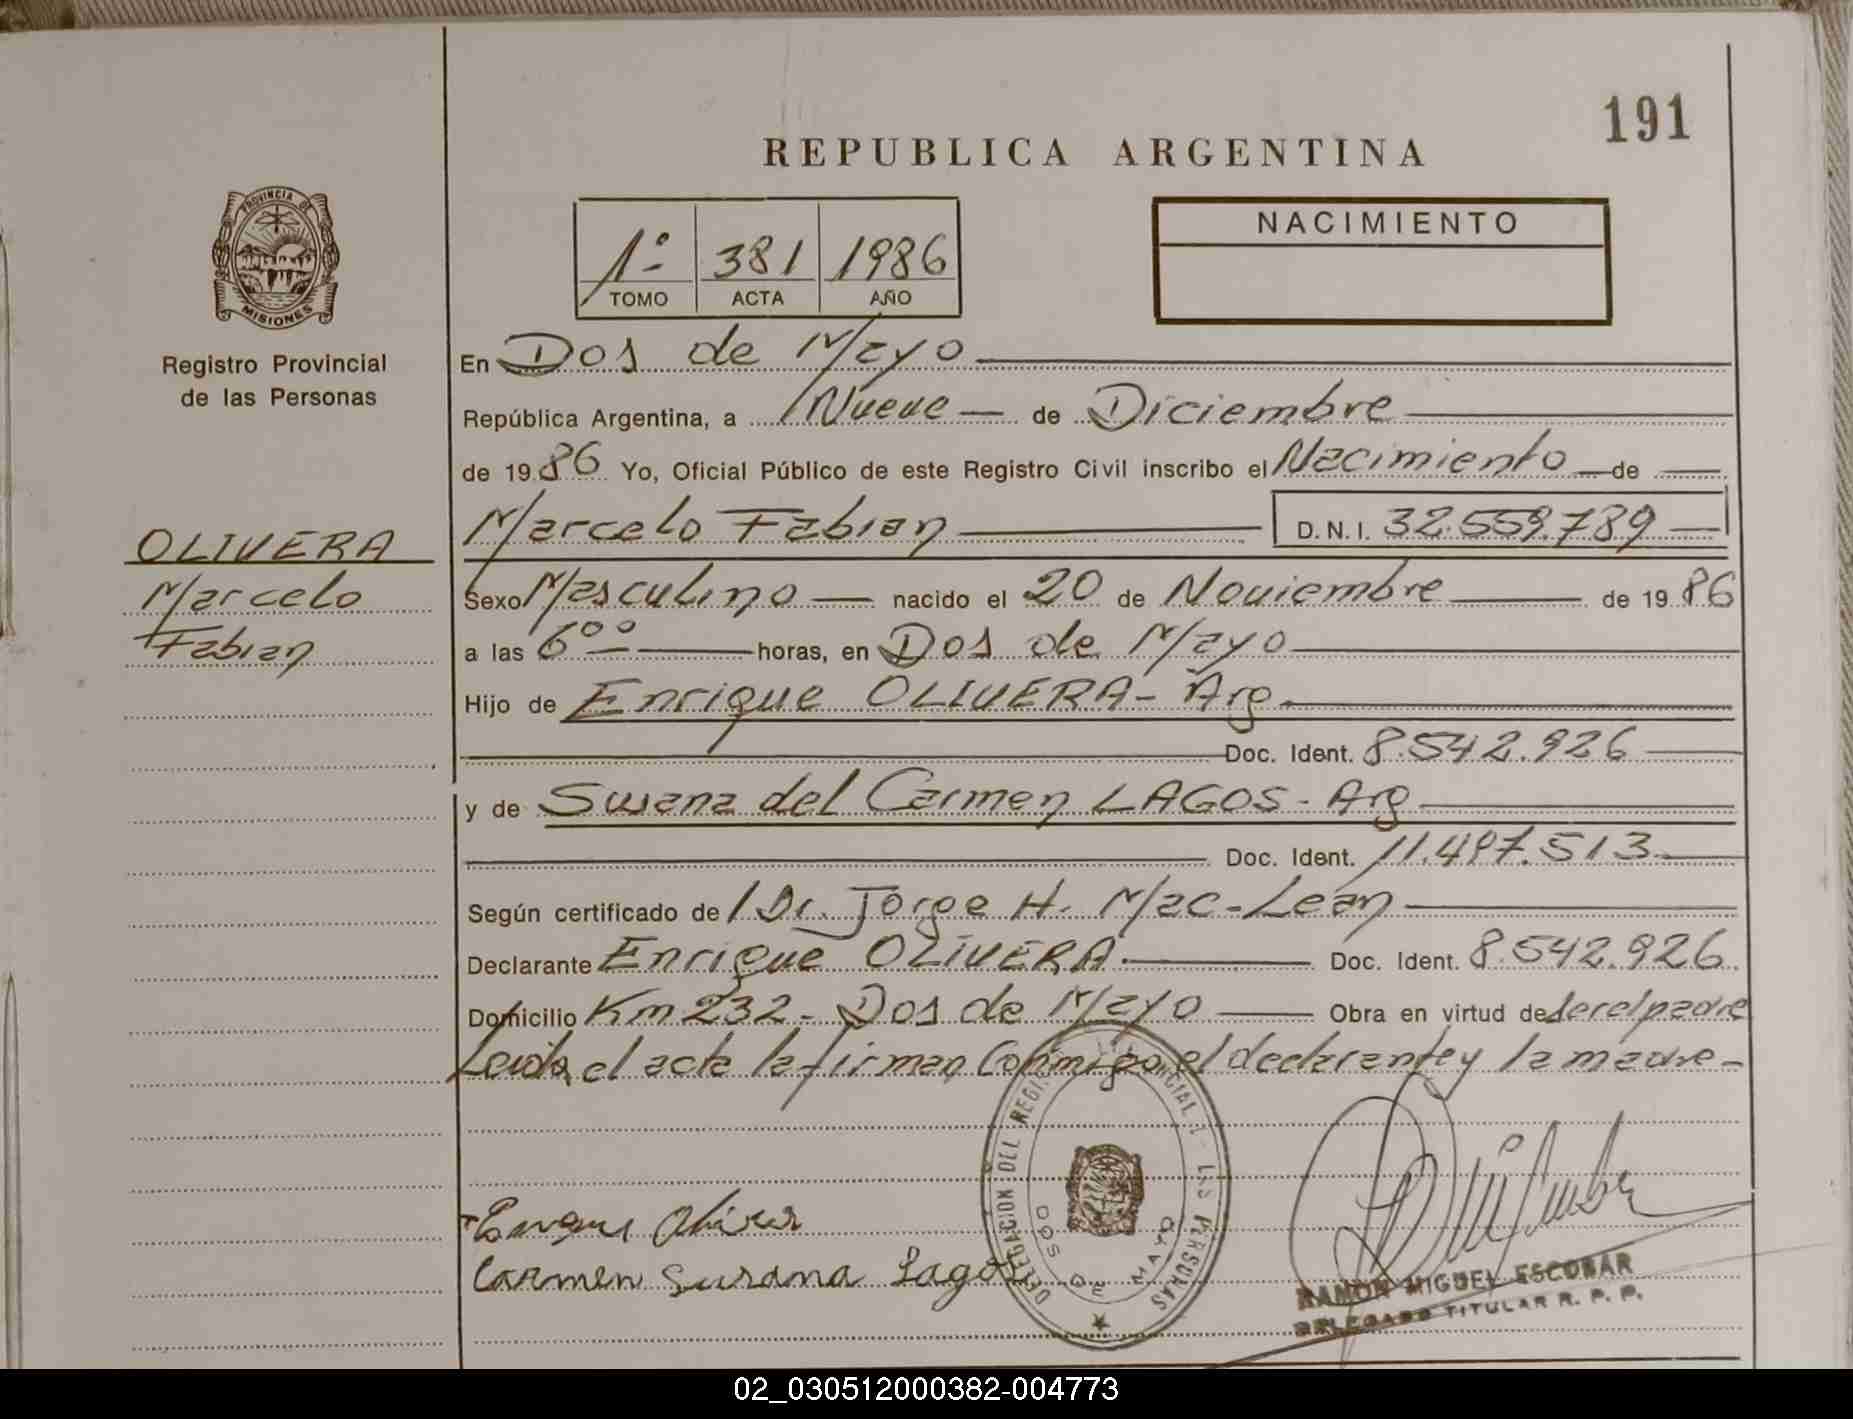 191
REPUBLICA ARGENTINA
PROVINCIA DE
MISIONES
Registro Provincial
de las Personas
1º 381 1986
TOMO ACTA AÑO
NACIMIENTO
En Dos de Mayo
República Argentina, a Nueve de Diciembre
de 1986 Yo, Oficial Público de este Registro Civil inscribo el Nacimiento de
OLIVERA
Marcelo
Fabian
Marcelo Fabian D.N.I. 32.559.789
Sexo Masculino nacido el 20 de Noviembre de 1986
a las 6ºº horas, en Dos de Mayo
Hijo de Enrique OLIVERA- Arg.
Doc. Ident. 8.542.926
y de Susana del Carmen LAGOS- Arg
Doc. Ident. 11.497.513
Según certificado de Dr. Jorge H. Mac-Lean
Declarante Enrique OLIVERA. Doc. Ident. 8.542.926
Domicilio Km 232- Dos de Mayo Obra en virtud de ser el padre
Leida el acta la firman Conmigo el declarante y la madre-
Carmen Susana Lagos
DELEGACION DEL REGISTRO PROVINCIAL DE LAS PERSONAS
DOS DE MAYO
RAMON MIGUEL ESCOBAR
DELEGADO TITULAR R. P. P.
02_030512000382-004773